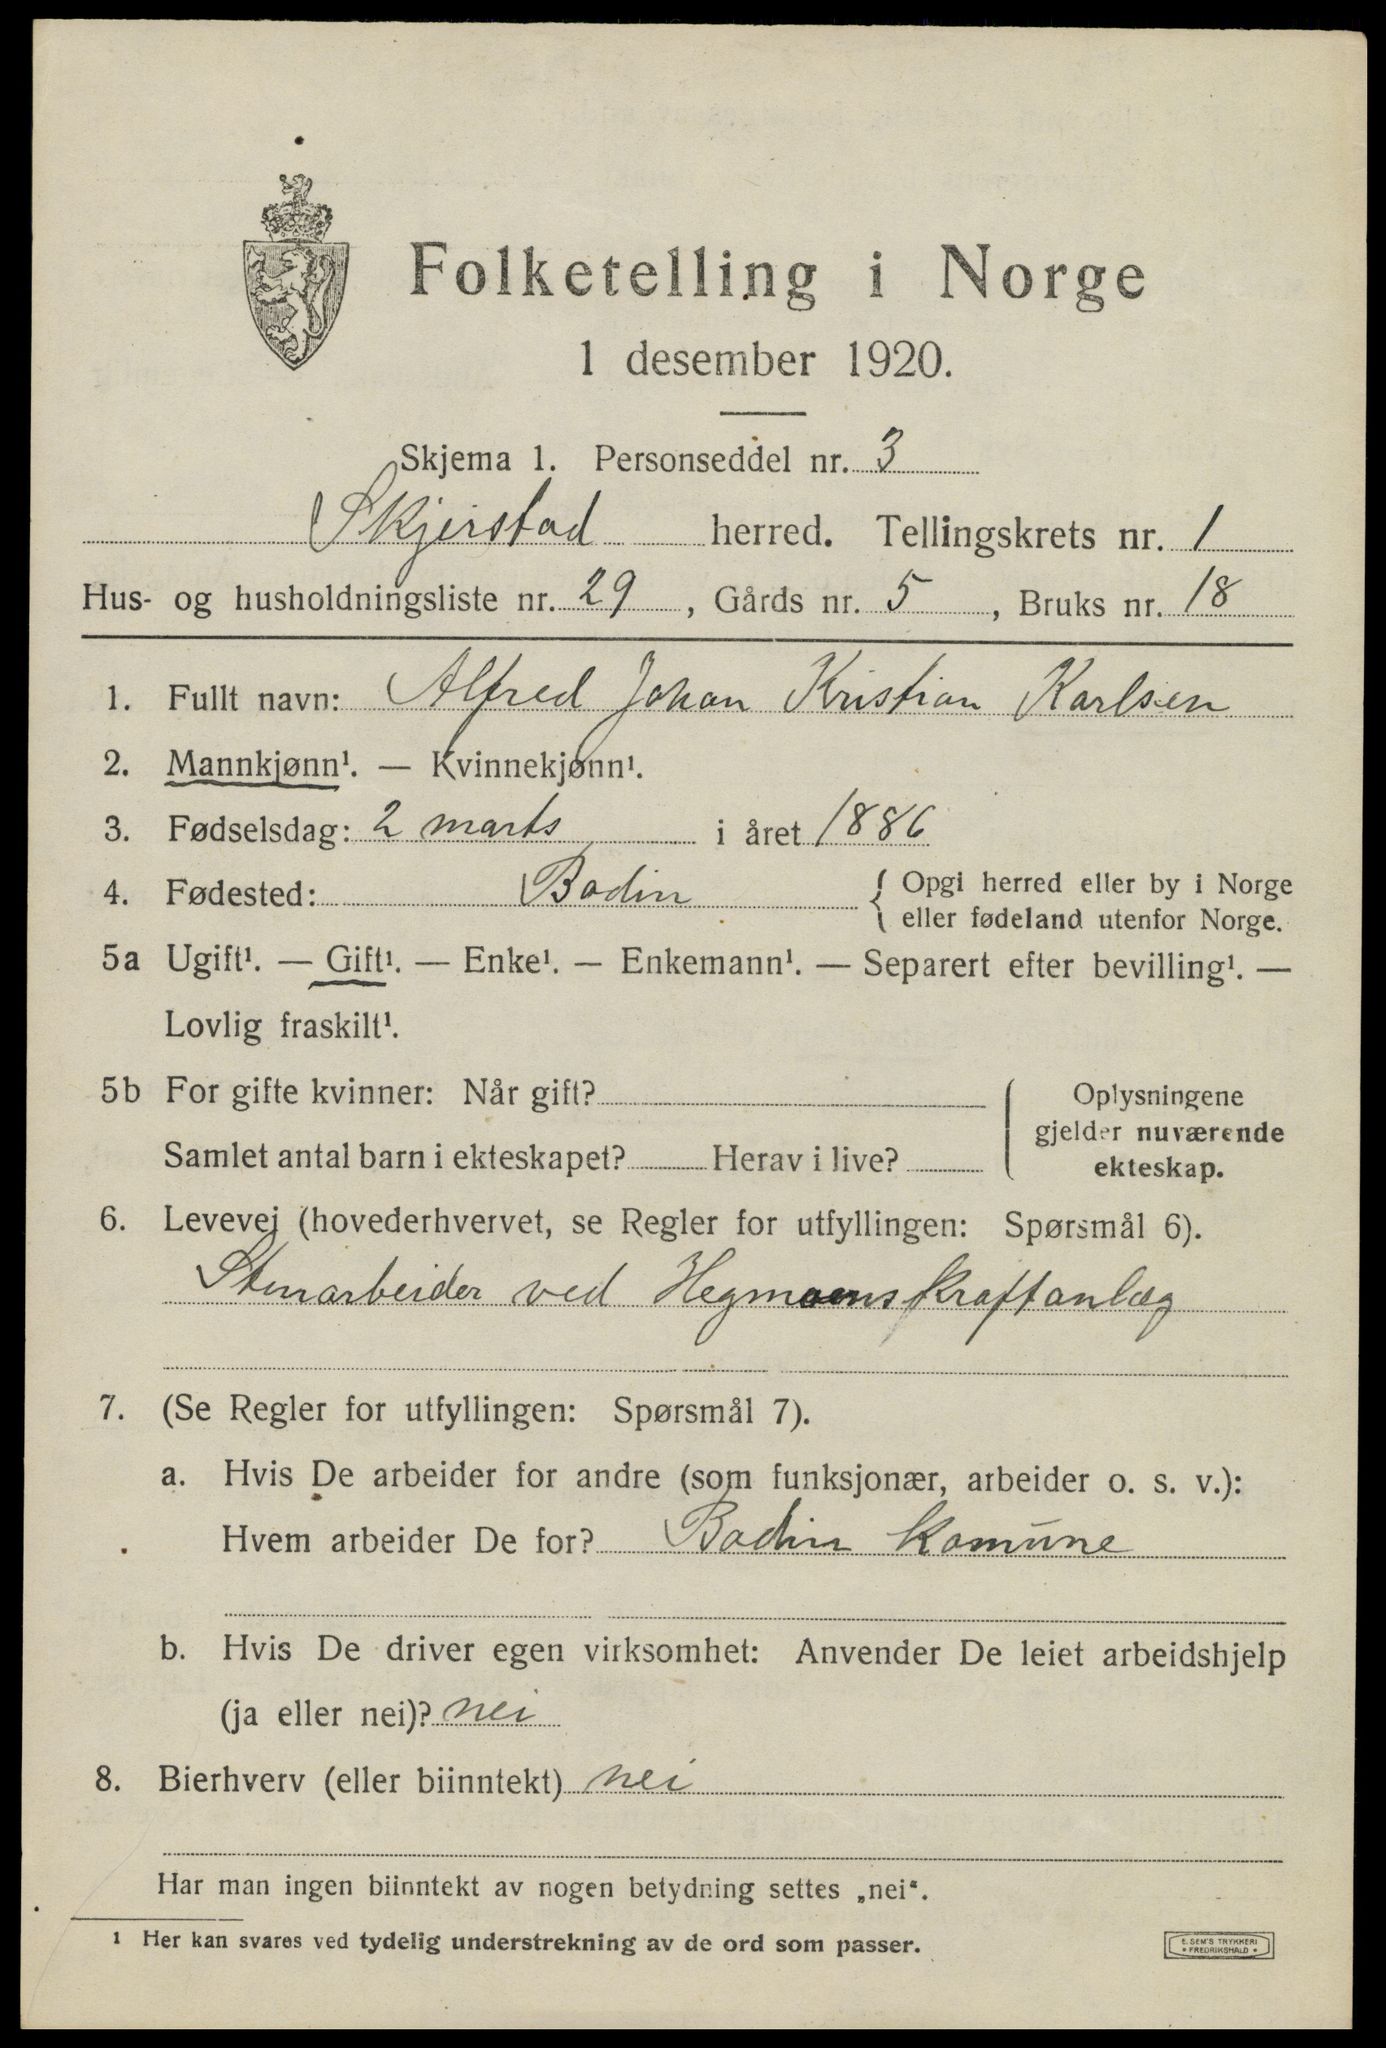 Folketelling i Norge
1 desember 1920.
Skjema 1. Personseddel nr. 3
Skjerstad herred. Tellingskrets nr. 1
Hus- og husholdningsliste nr. 29, Gårds nr. 5, Bruks nr. 18
1. Fullt navn: Alfred Johan Kristian Karlsen
2. Mannkjønn¹. — Kvinnekjønn¹.
3. Fødselsdag: 2 marts i året 1886
4. Fødested: Bodin { Opgi herred eller by i Norge
eller fødeland utenfor Norge.
5a Ugift¹. — Gift¹. — Enke¹. — Enkemann¹. — Separert efter bevilling¹. —
Lovlig fraskilt¹.
5b For gifte kvinner: Når gift?
Samlet antal barn i ekteskapet? Herav i live?
Oplysningene
gjelder nuværende
ekteskap.
6. Levevej (hovederhvervet, se Regler for utfyllingen: Spørsmål 6).
Stenarbeider ved Hegmoens kraftanlæg
7. (Se Regler for utfyllingen: Spørsmål 7).
a. Hvis De arbeider for andre (som funksjonær, arbeider o. s. v.):
Hvem arbeider De for? Bodin komune
b. Hvis De driver egen virksomhet: Anvender De leiet arbeidshjelp
(ja eller nei)? nei
8. Bierhverv (eller biinntekt) nei
Har man ingen biinntekt av nogen betydning settes „nei“.
¹ Her kan svares ved tydelig understrekning av de ord som passer.
E. SEM'S TRYKKERI
• FREDRIKSHALD •